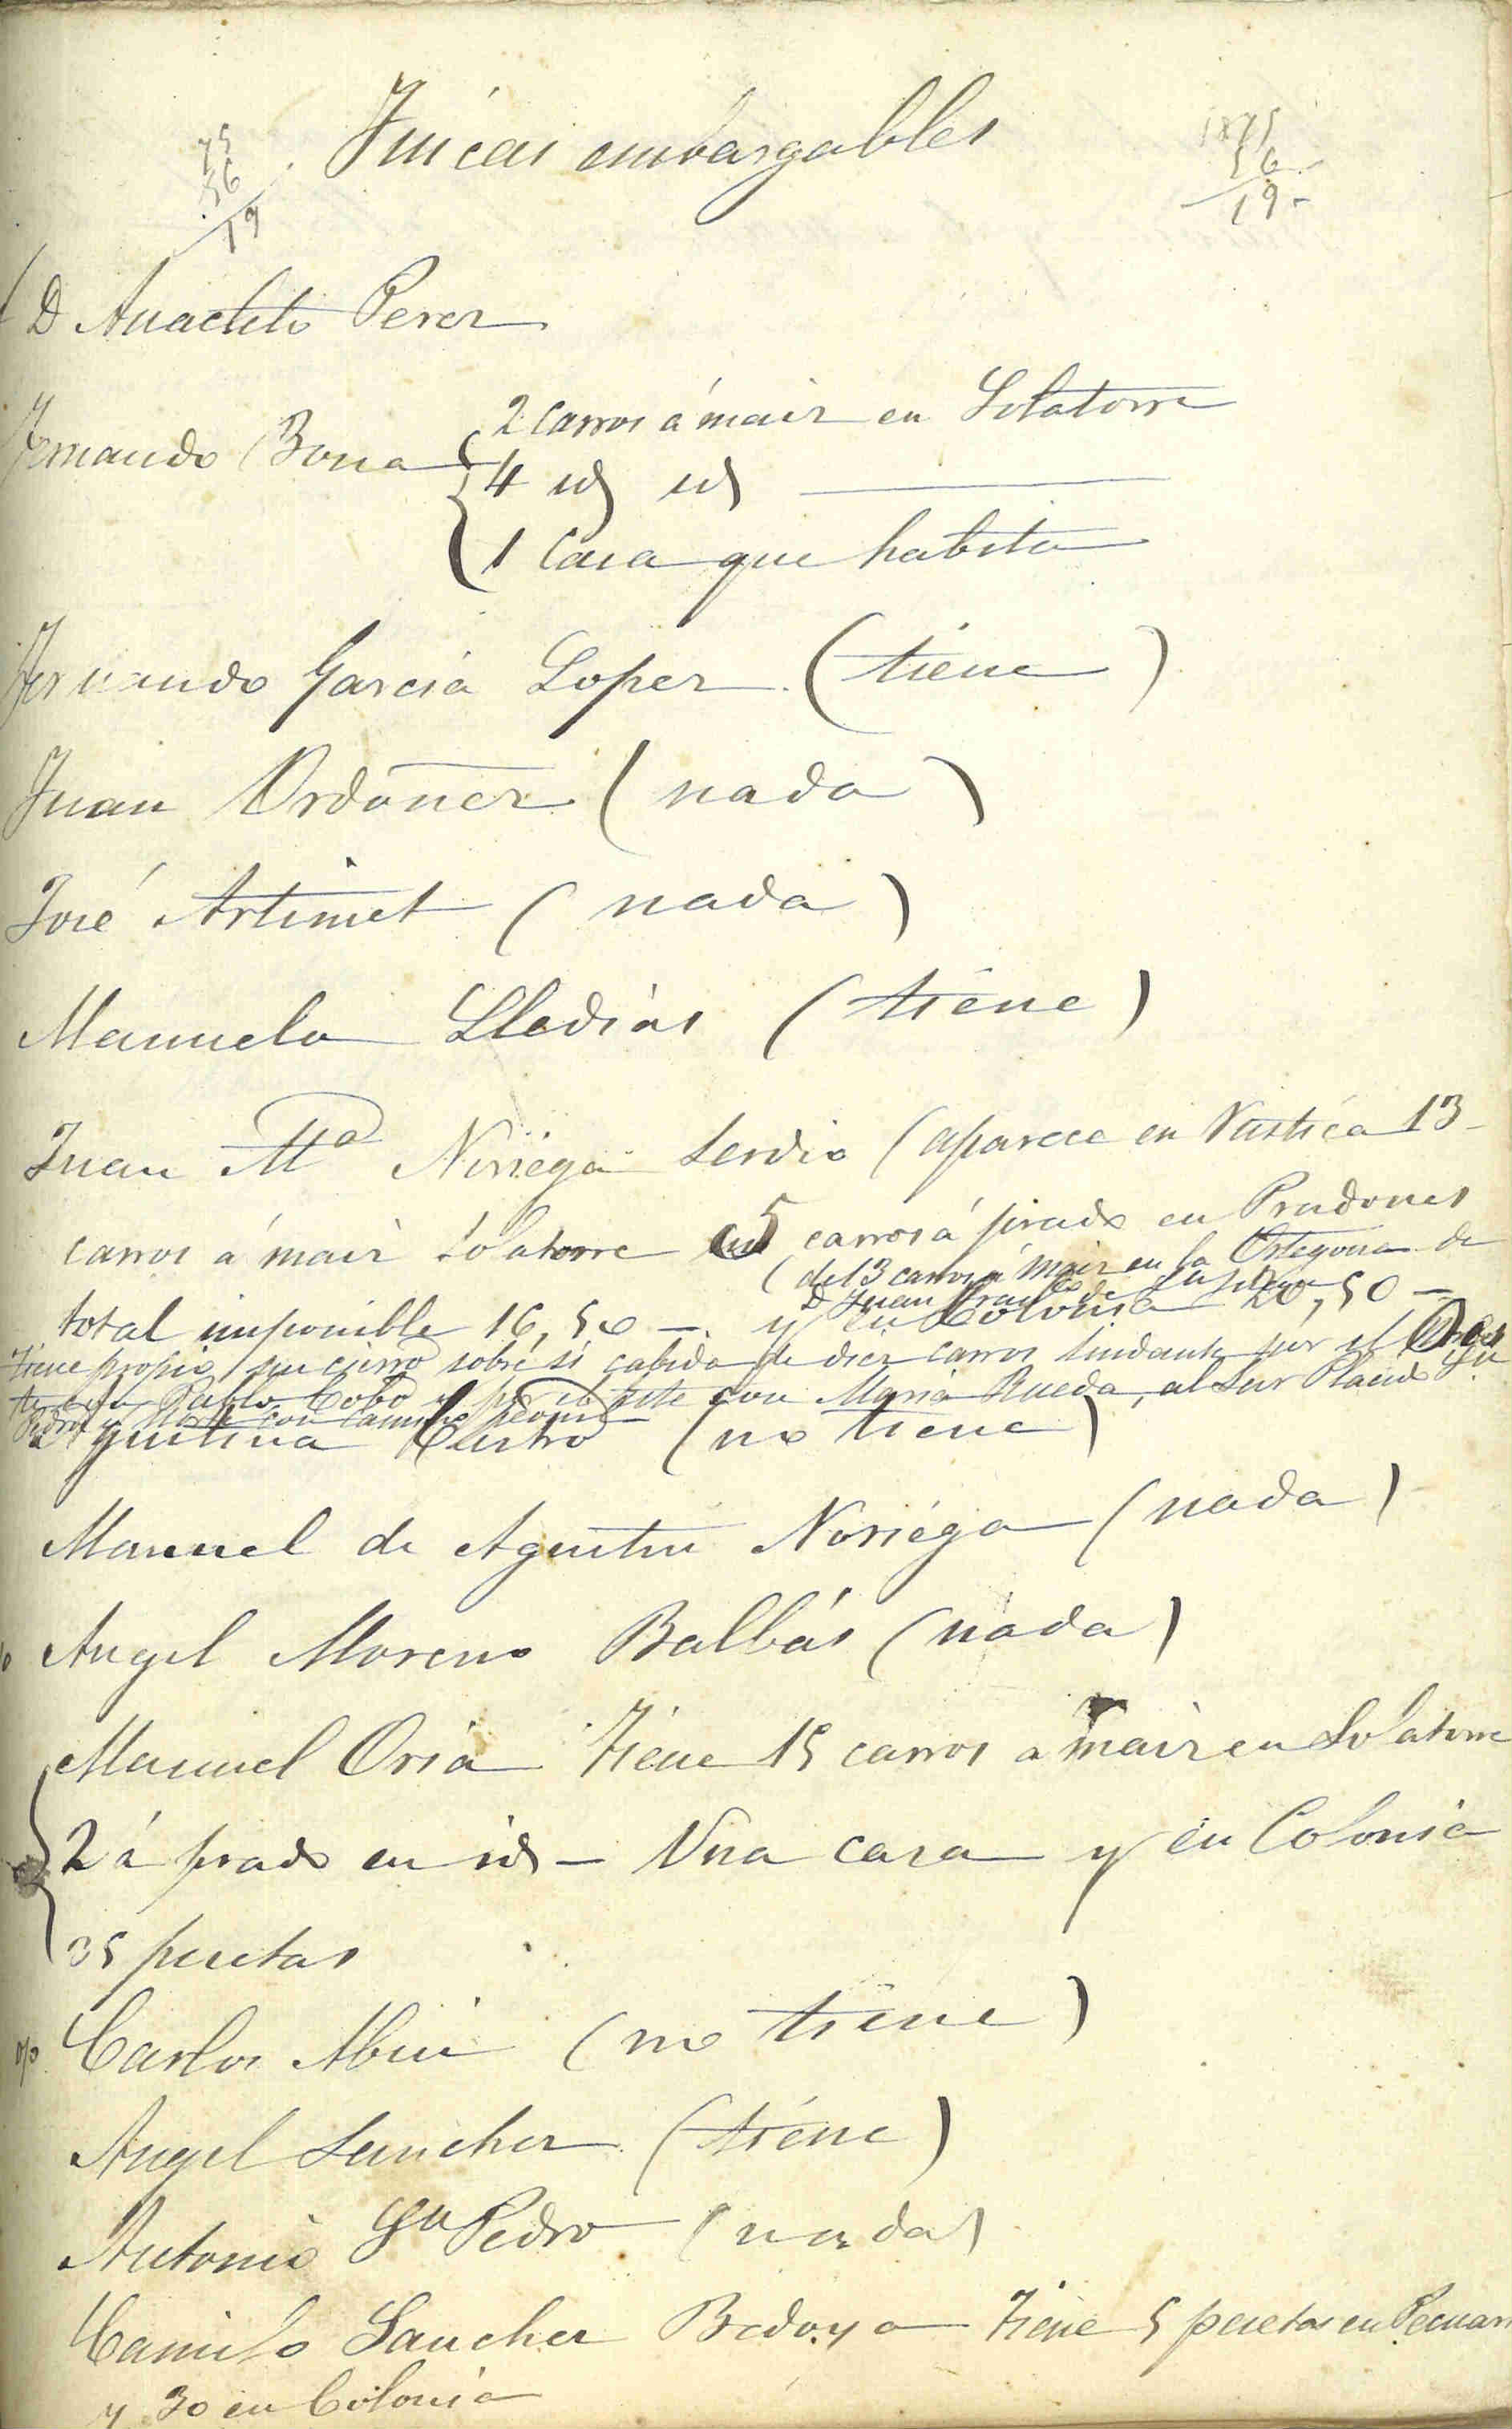 Fincas embargables
75
56
19
1875
56
19-
D Anacleto Perez
Fernando Bona
2 carros á maiz en Solatorre
4 id id ——
1 Casa que habita
Fernando Garcia Lopez (tiene)
Juan Ordoñez (nada)
José Artimet (nada)
Manuela Lledias (tiene)
Juan Mª Noriega Serdio (aparece en Rústica 13
carros á maiz Solatorre 5 carros á prado en Pradones
(del 3 carros á maiz en la de
D Juan
total imponible 16,50 — y en Colonia 20,50 —
Tiene propio, sin cierro sobre sí cabida de diez carros lindante por el
Pablo Cobo y por el este con Maria Rueda, al Sur Placido Sn
Pedro y Norte con camino peonil
Agustina Castro (no tiene)
Manuel de Agustin Noriega (nada)
Angel Moreno Balbás (nada)
Manuel Oria Tiene 15 carros a maiz en Solatorre
2 á prado en id — Una casa y en Colonia
35 pesetas
Carlos (no tiene)
Angel Sanchez (tiene)
Antonio Sn Pedro (nada)
Camilo Sanchez Bedoya Tiene 5 pesetas en Pecuar
y 30 en Colonia